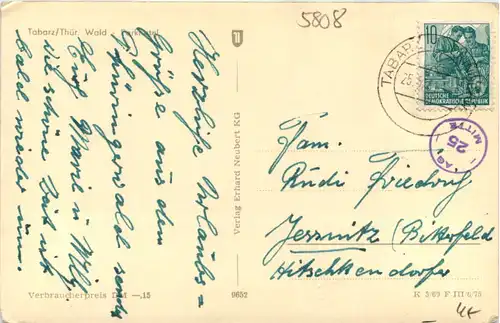 5808
Tabarz/Thür. Wald
Parkhotel
Herzliche Urlaubs=
Grüße aus dem
Thüringerwald sendet
Die schöne Zeit ist
bald wieder um.
Verbraucherpreis DM —,15
Verlag Erhard Neubert KG
9652
10
DEUTSCHE
DEMOKRATISCHE REPUBLIK
TABAR
25
MITTE
25
Fam.
Rudi Friedrich
Jessnitz (Bitterfeld
Hitschkendorfer
K 5/69 F III/6/75